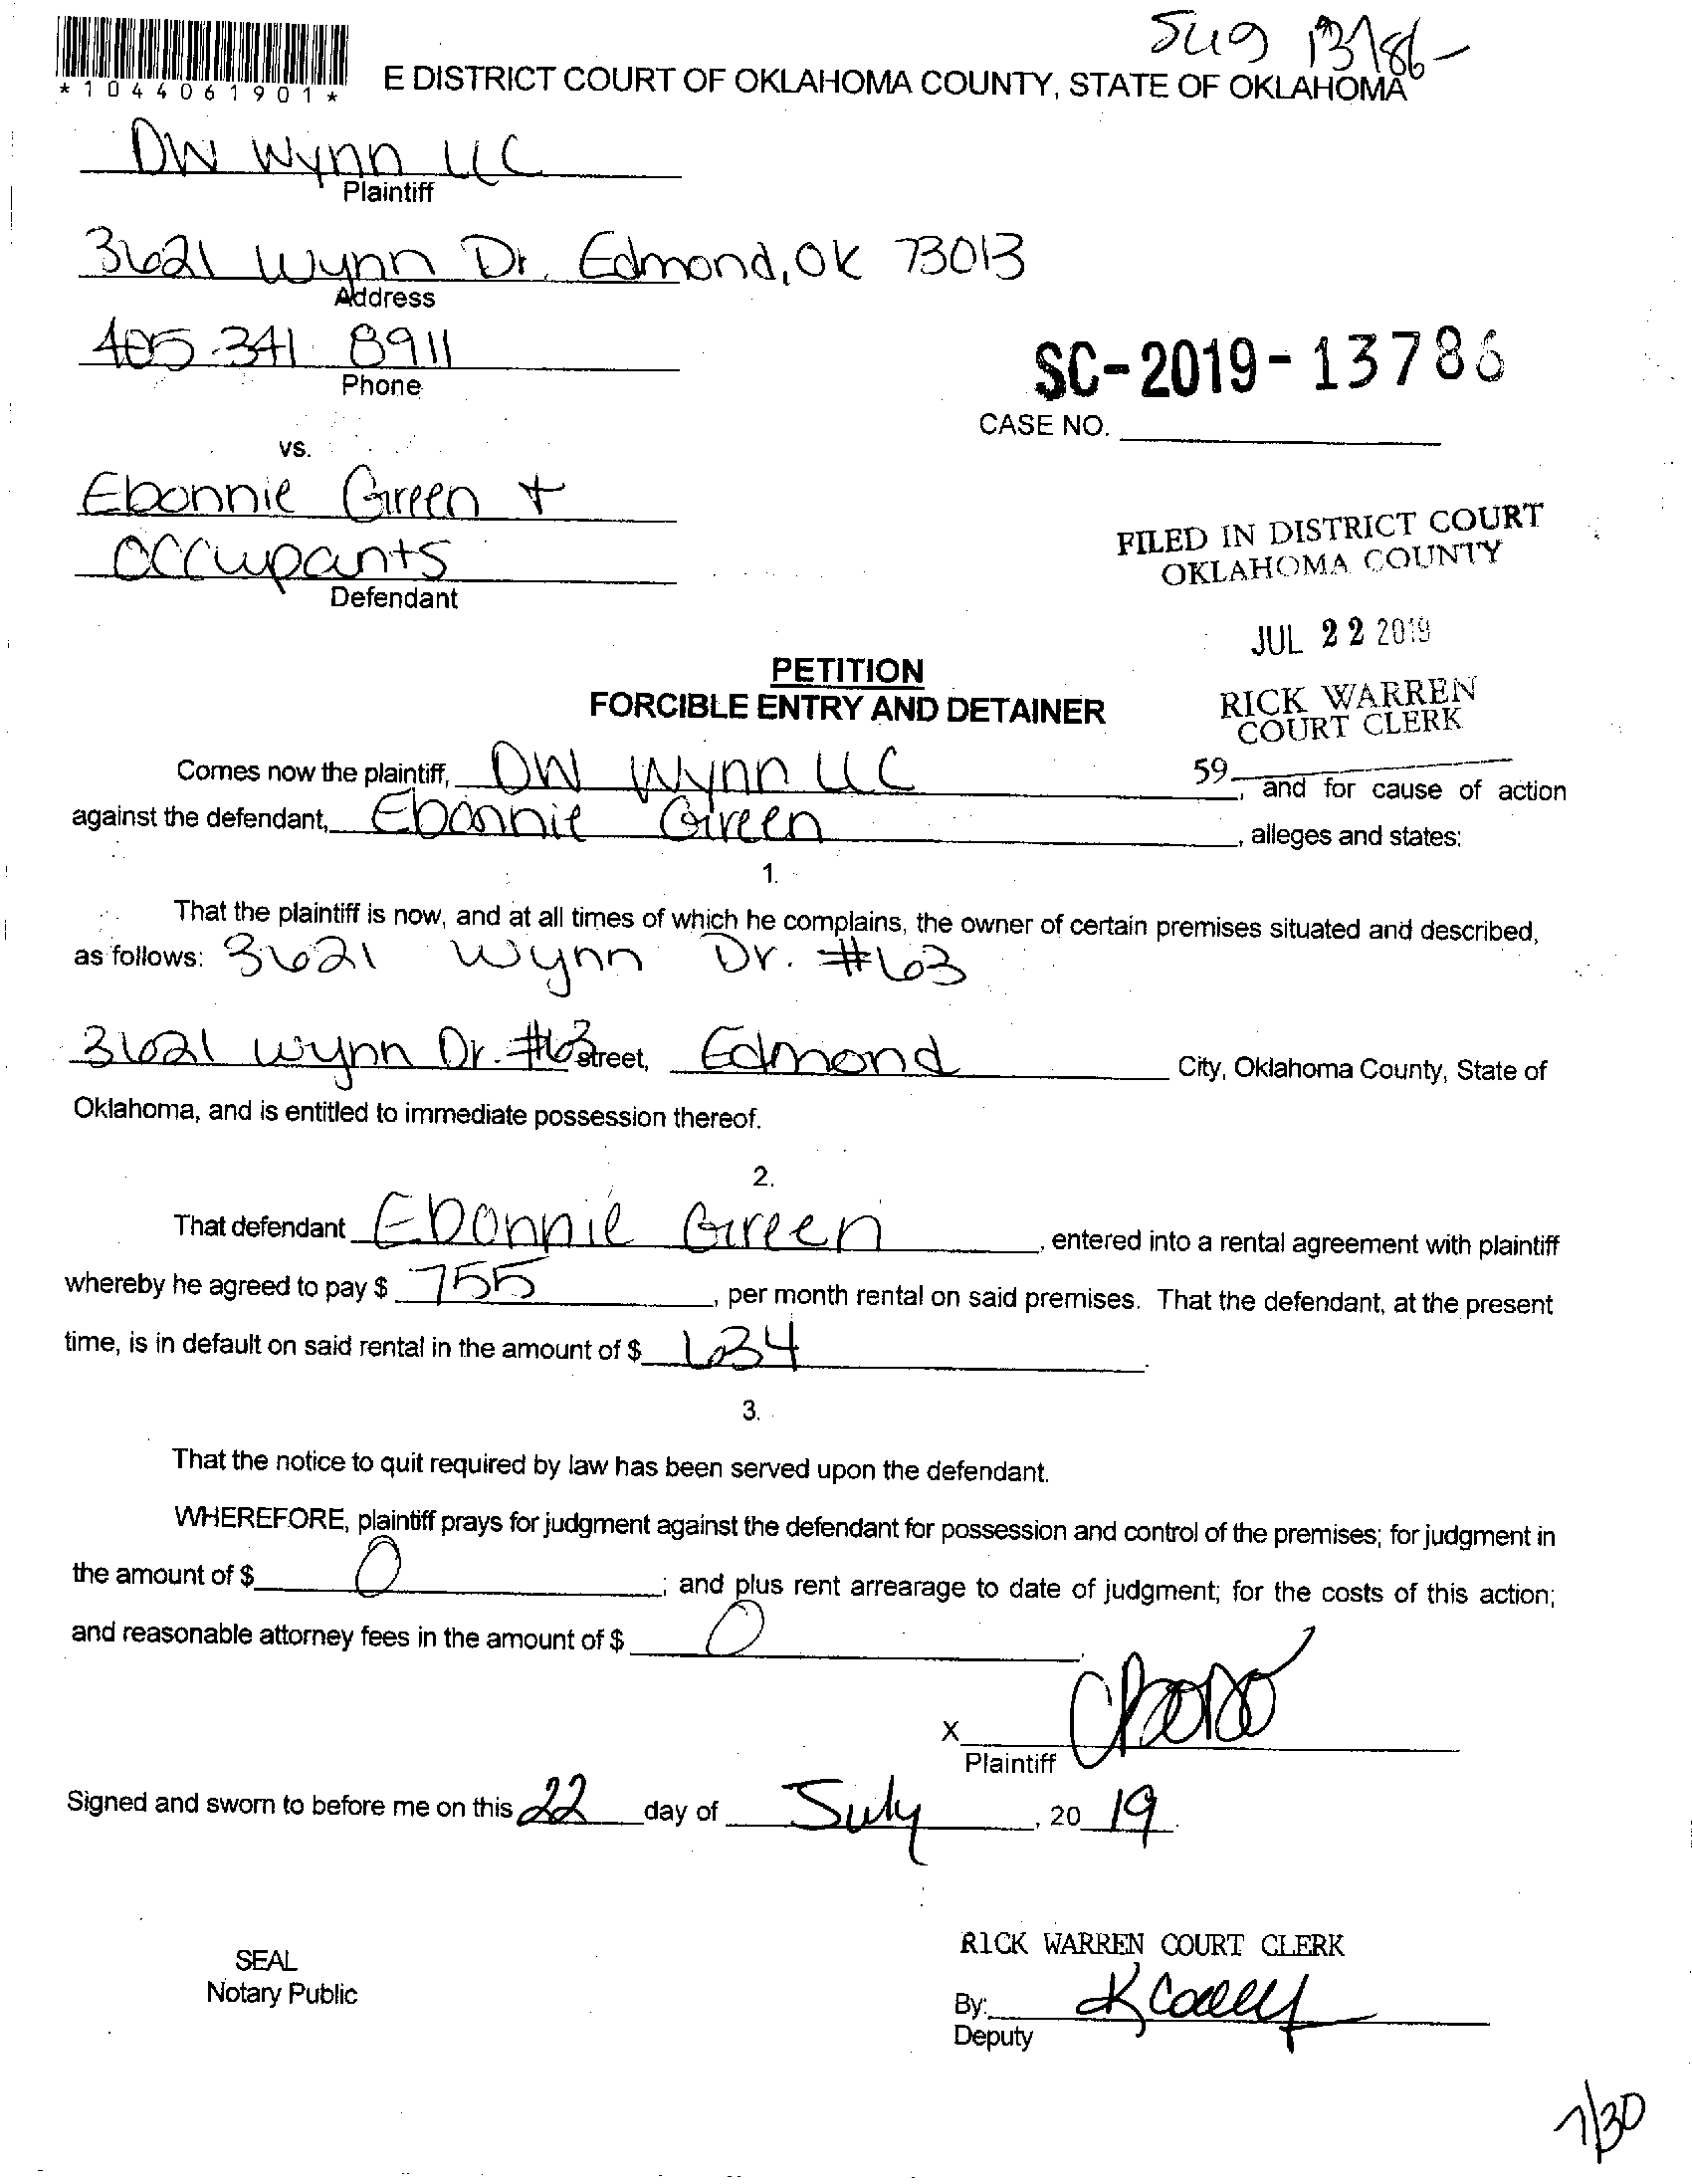 *1044061901*
E DISTRICT COURT OF OKLAHOMA COUNTY, STATE OF OKLAHOMA
DW Wynn LLC
Plaintiff
3621 Wynn Dr. Edmond, OK 73013
Address
405 341 8911
Phone
SC-2019-13786
CASE NO.
vs.
Ebonnie Green +
occupants
Defendant
FILED IN DISTRICT COURT
OKLAHOMA COUNTY
JUL 22 2019
RICK WARREN
COURT CLERK
59
PETITION
FORCIBLE ENTRY AND DETAINER
Comes now the plaintiff, DW Wynn LLC, and for cause of action
against the defendant, Ebonnie Green, alleges and states:
1.
That the plaintiff is now, and at all times of which he complains, the owner of certain premises situated and described,
as follows: 3621 Wynn Dr. #63
3621 Wynn Dr. #63 street, Edmond City, Oklahoma County, State of
Oklahoma, and is entitled to immediate possession thereof.
2.
That defendant Ebonnie Green, entered into a rental agreement with plaintiff
whereby he agreed to pay $ 755, per month rental on said premises. That the defendant, at the present
time, is in default on said rental in the amount of $ 634.
3.
That the notice to quit required by law has been served upon the defendant.
WHEREFORE, plaintiff prays for judgment against the defendant for possession and control of the premises; for judgment in
the amount of $ 0; and plus rent arrearage to date of judgment; for the costs of this action;
and reasonable attorney fees in the amount of $ 0.
X
Plaintiff
Signed and sworn to before me on this 22 day of July, 20 19.
SEAL
Notary Public
RICK WARREN COURT CLERK
By:
Deputy
7/30